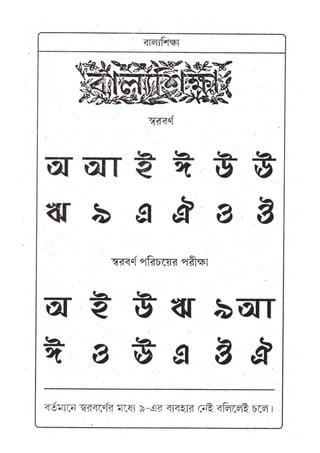 বাল্যশিক্ষা
বাল্যশিক্ষা
স্বরবর্ণ
অ আ ই ঈ উ ঊ
ঋ ঌ এ ঐ ও ঔ
স্বরবর্ণ পরিচয়ের পরীক্ষা
অ ই উ ঋ ঌ আ
ঈ ও ঊ এ ঔ ঐ
বর্তমানে স্বরবর্ণের মধ্যে ঌ-এর ব্যবহার নেই বলিলেই চলে।